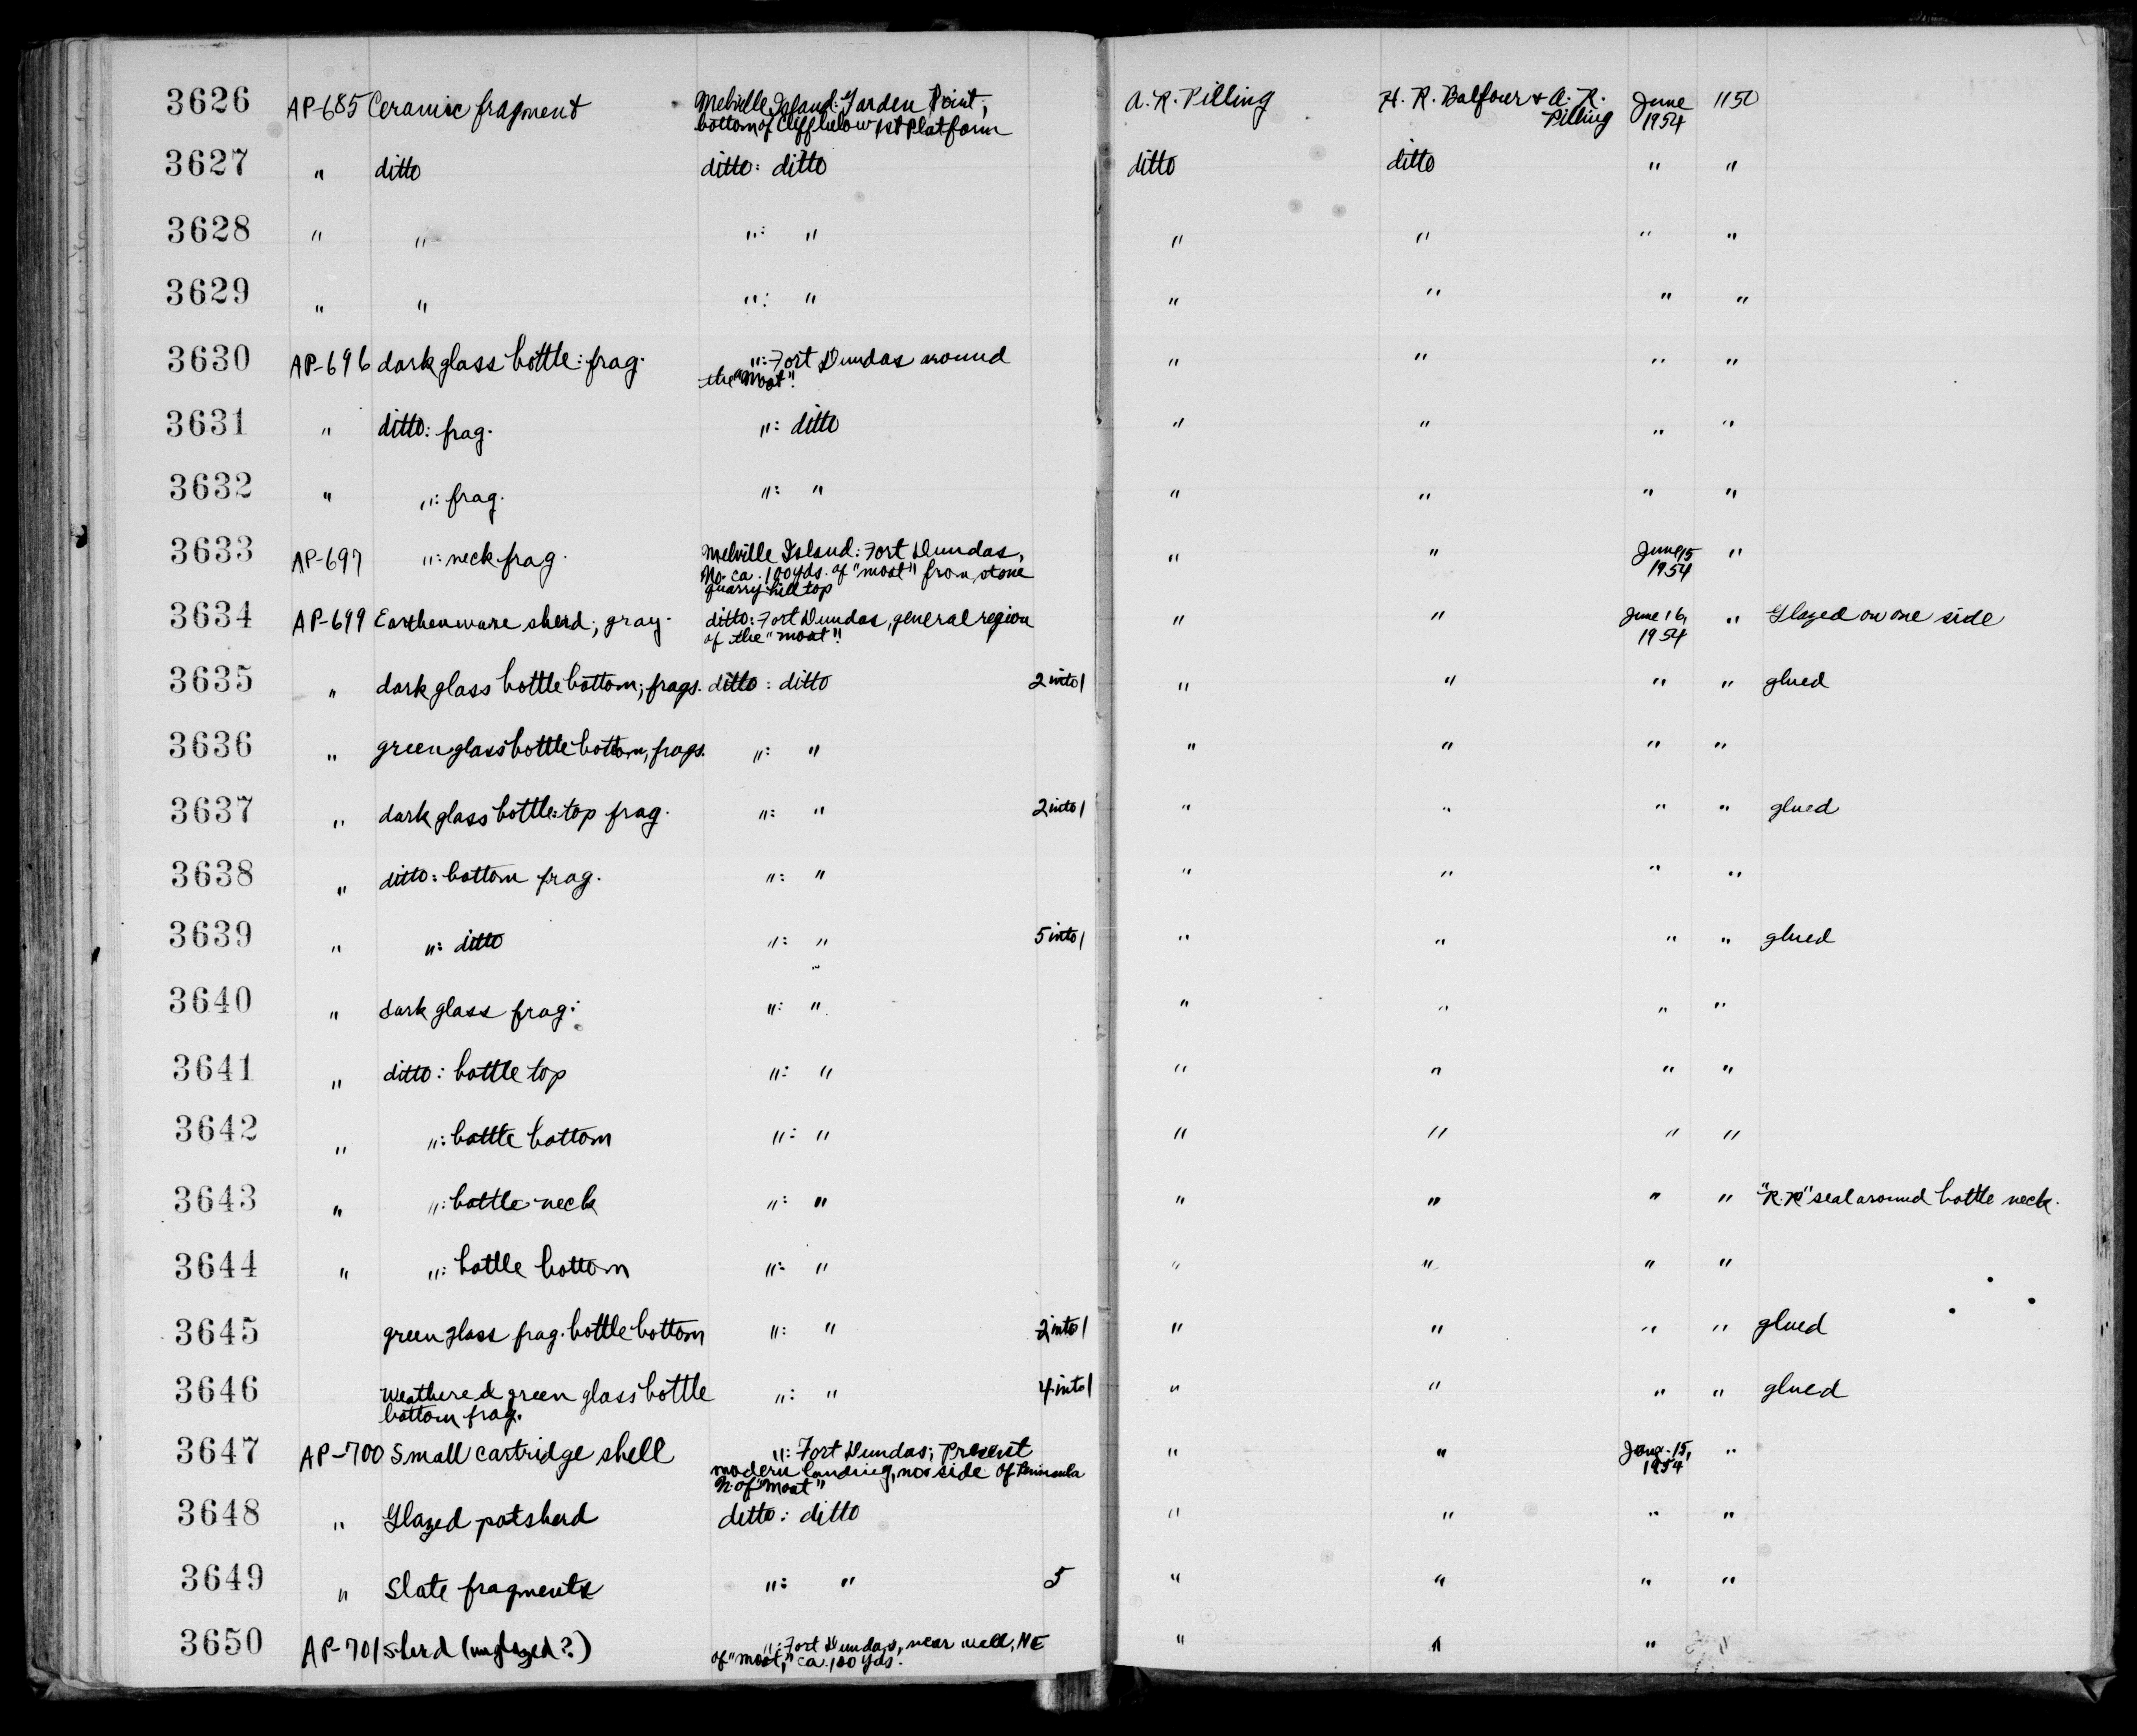 3626 AP-685 Ceramic fragment Melville Island: Garden Point; A. R. Pilling H. R. Balfour & A. R. June 1150
bottom of Cliff below 1st Platform Pilling 1954
3627 " ditto ditto: ditto ditto ditto " "
3628 " " ": " " " " "
3629 " " ": " " " " "
3630 AP-696 dark glass bottle: frag. ": Fort Dundas around " " " "
the "Moat".
3631 " ditto: frag. ": ditto " " " "
3632 " ": frag. ": " " " " "
3633 AP-697 ": neck frag. Melville Island: Fort Dundas, " " June 15 "
No. ca. 100 yds. of "moat" from stone 1954
quarry hill top
3634 AP-699 Earthenware sherd; gray. ditto: Fort Dundas, general region " " June 16, " Glazed on one side
of the "moat". 1954
3635 " dark glass bottle bottom; frags. ditto: ditto 2 into 1 " " " " glued
3636 " green glass bottle bottom, frags. ": " " " " "
3637 " dark glass bottle: top frag. ": " 2 into 1 " " " " glued
3638 " ditto: bottom frag. ": " " " " "
3639 " ": ditto ": " 5 into 1 " " " " glued
3640 " dark glass frag: ": " " " " "
3641 " ditto: bottle top ": " " " " "
3642 " ": bottle bottom ": " " " " "
3643 " ": bottle neck ": " " " " " "R.R" seal around bottle neck.
3644 " ": bottle bottom ": " " " " "
3645 green glass frag. bottle bottom ": " 2 into 1 " " " " glued
3646 Weathered green glass bottle ": " 4 into 1 " " " " glued
bottom frag.
3647 AP-700 Small cartridge shell ": Fort Dundas; Present " " 15, "
modern landing, no. side of Peninsula 1954
N. of "Moat"
3648 " Glazed potsherd ditto: ditto " " " "
3649 " Slate fragments ": " 5 " " " "
3650 AP-701 Sherd (unglazed?) ": Fort Dundas, near well, NE " " " "
of "moat," ca. 100 yds.